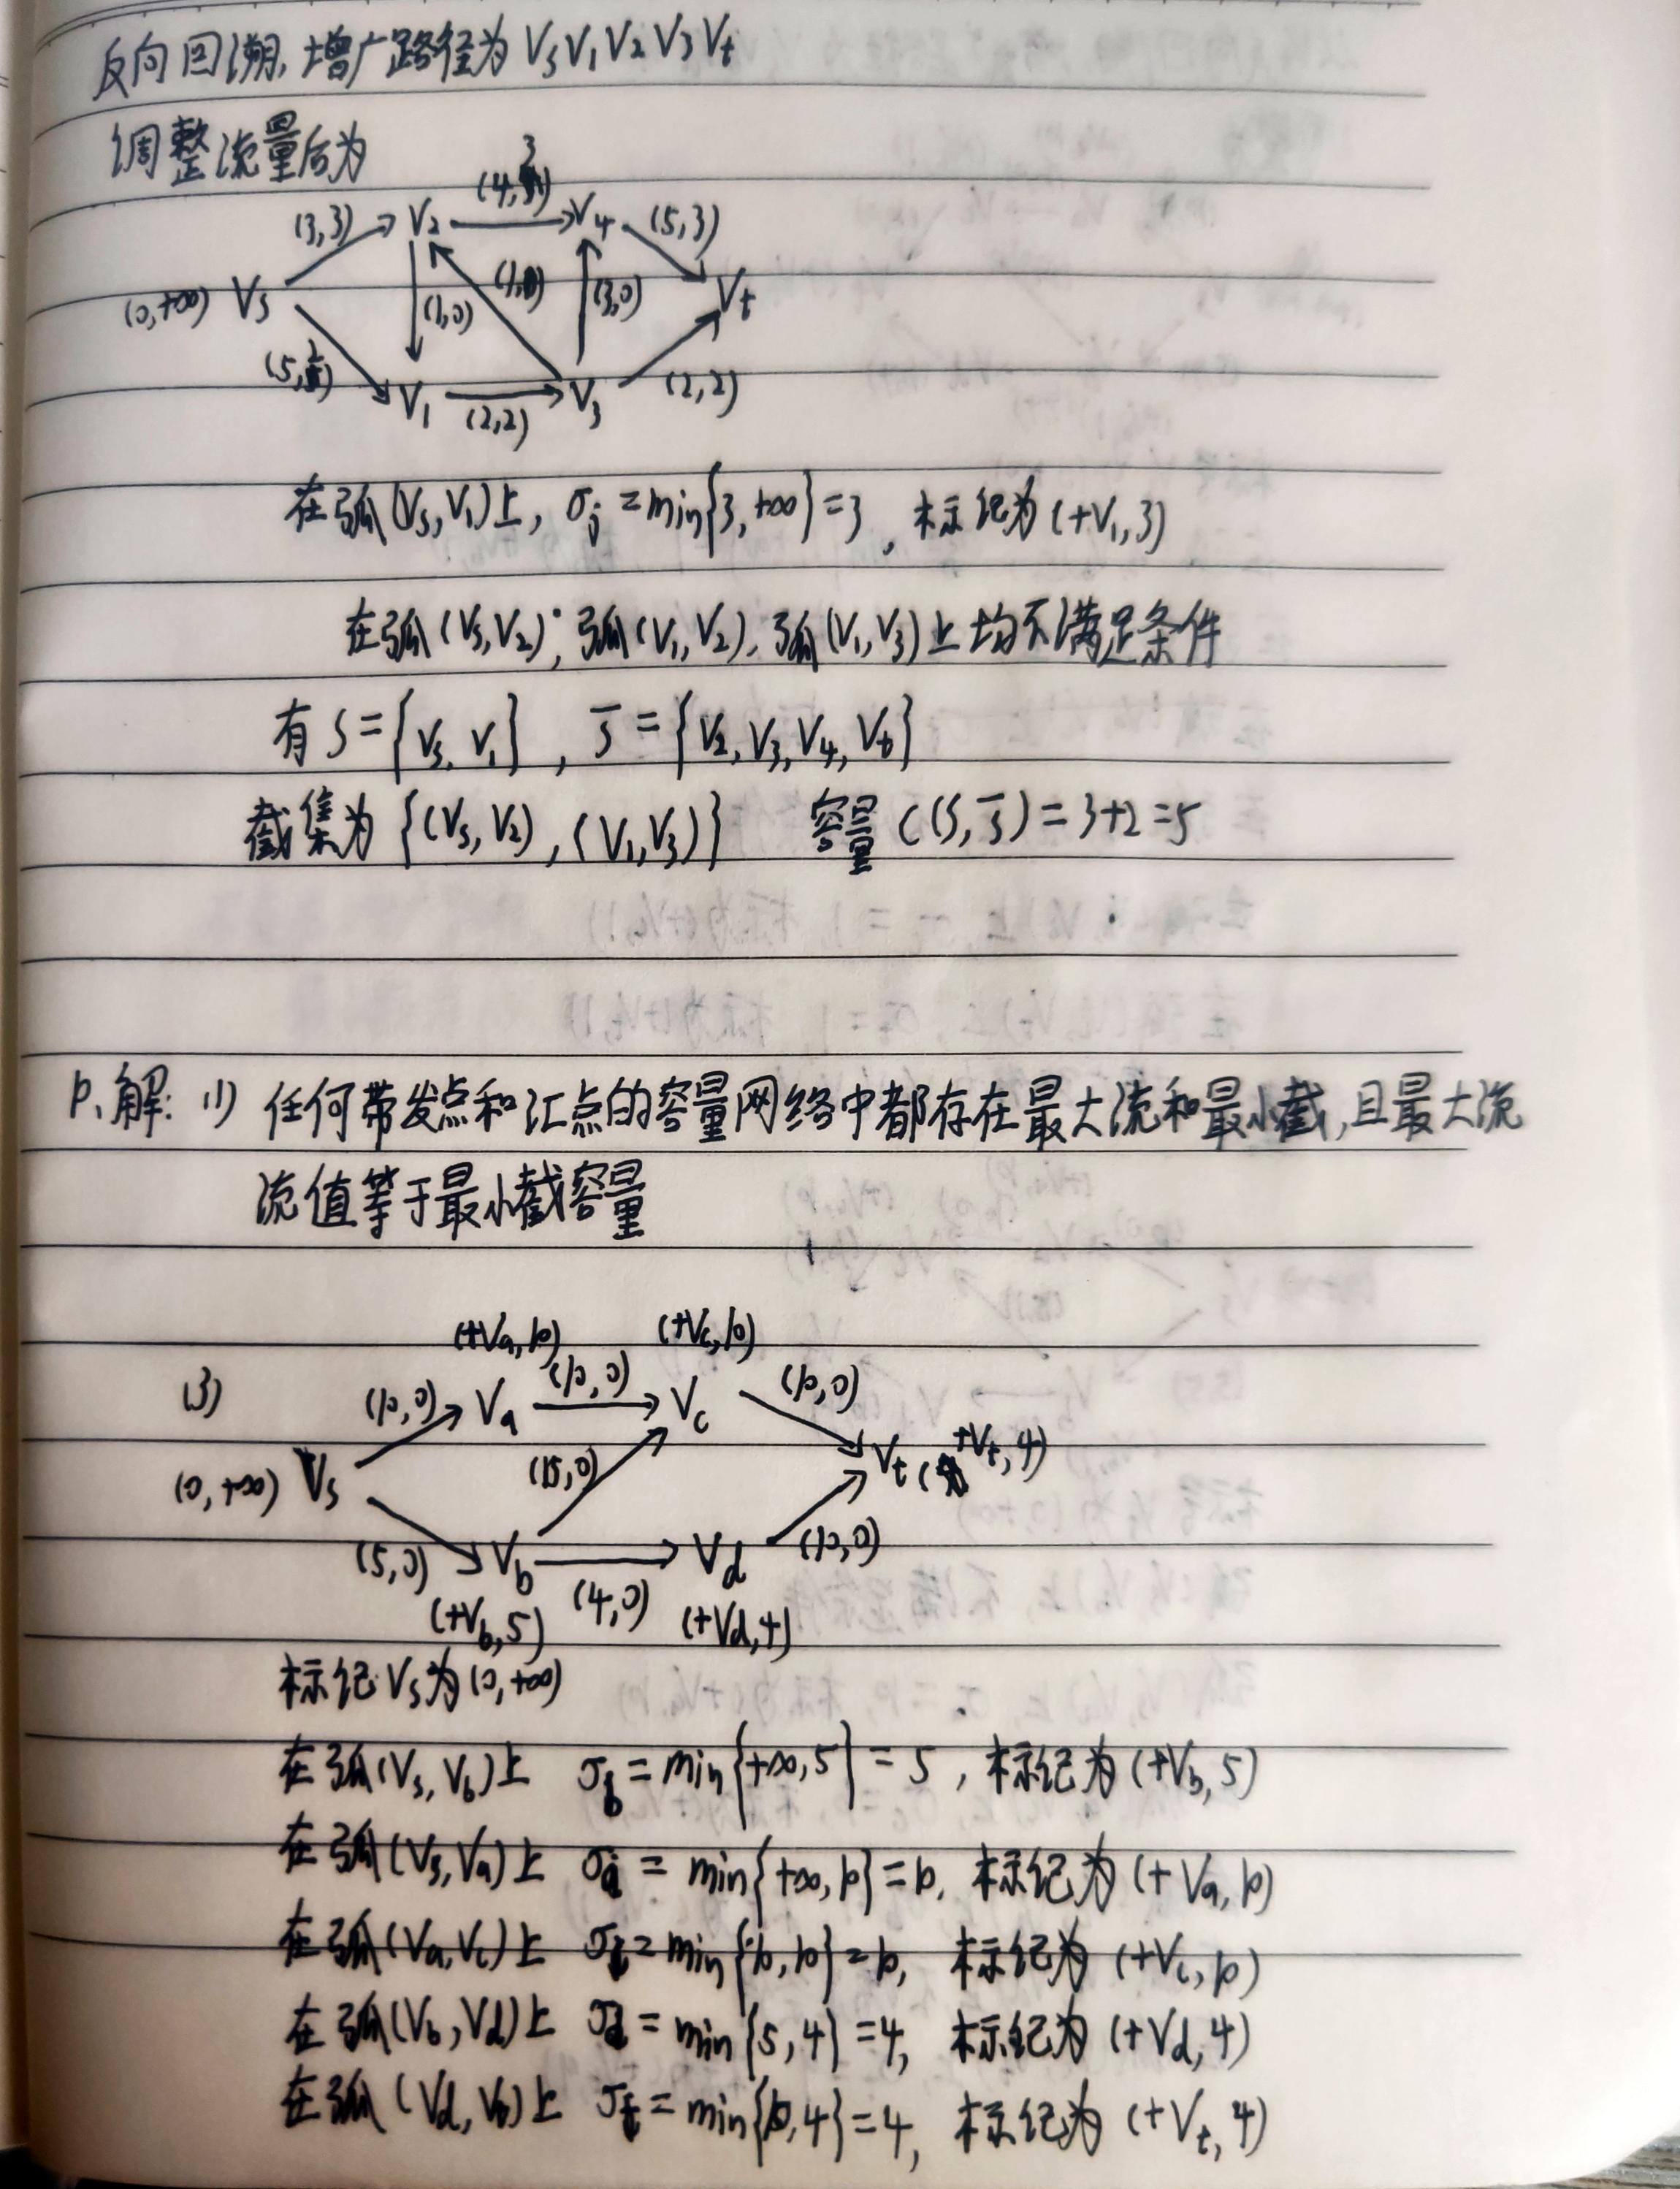 反向回溯,增广路径为 Vs V1 V2 V3 Vt
调整流量后为
3
(3,3) V2 (4,) V4 (5,3)
(0,+∞) Vs (1,0) (1,0) (3,0) Vt
(5,2) V1 (2,2) V3 (2,2)
在弧(Vs,V1)上, σj = min{3,+∞}=3, 标记为(+V1,3)
在弧(Vs,V2),弧(V1,V2),弧(V1,V3)上均不满足条件
有 S={Vs, V1}, S̄={V2,V3,V4,Vt}
截集为{(Vs,V2),(V1,V3)} 容量 C(S,S̄)=3+2=5
10、解:(1) 任何带发点和汇点的容量网络中都存在最大流和最小截,且最大流
流值等于最小截容量
(+Va,10) (+Vc,10)
(3) (10,0) Va (10,0) Vc (10,0)
(0,+∞) Vs (15,0) Vt (+Vt,4)
(5,0) Vb (4,0) Vd (10,0)
(+Vb,5) (+Vd,4)
标记Vs为(0,+∞)
在弧(Vs,Vb)上 σb=min{+∞,5}=5, 标记为(+Vb,5)
在弧(Vs,Va)上 σa=min{+∞,10}=10, 标记为(+Va,10)
在弧(Va,Vc)上 σc=min{10,10}=10, 标记为(+Vc,10)
在弧(Vb,Vd)上 σd=min{5,4}=4, 标记为(+Vd,4)
在弧(Vd,Vt)上 σt=min{10,4}=4, 标记为(+Vt,4)